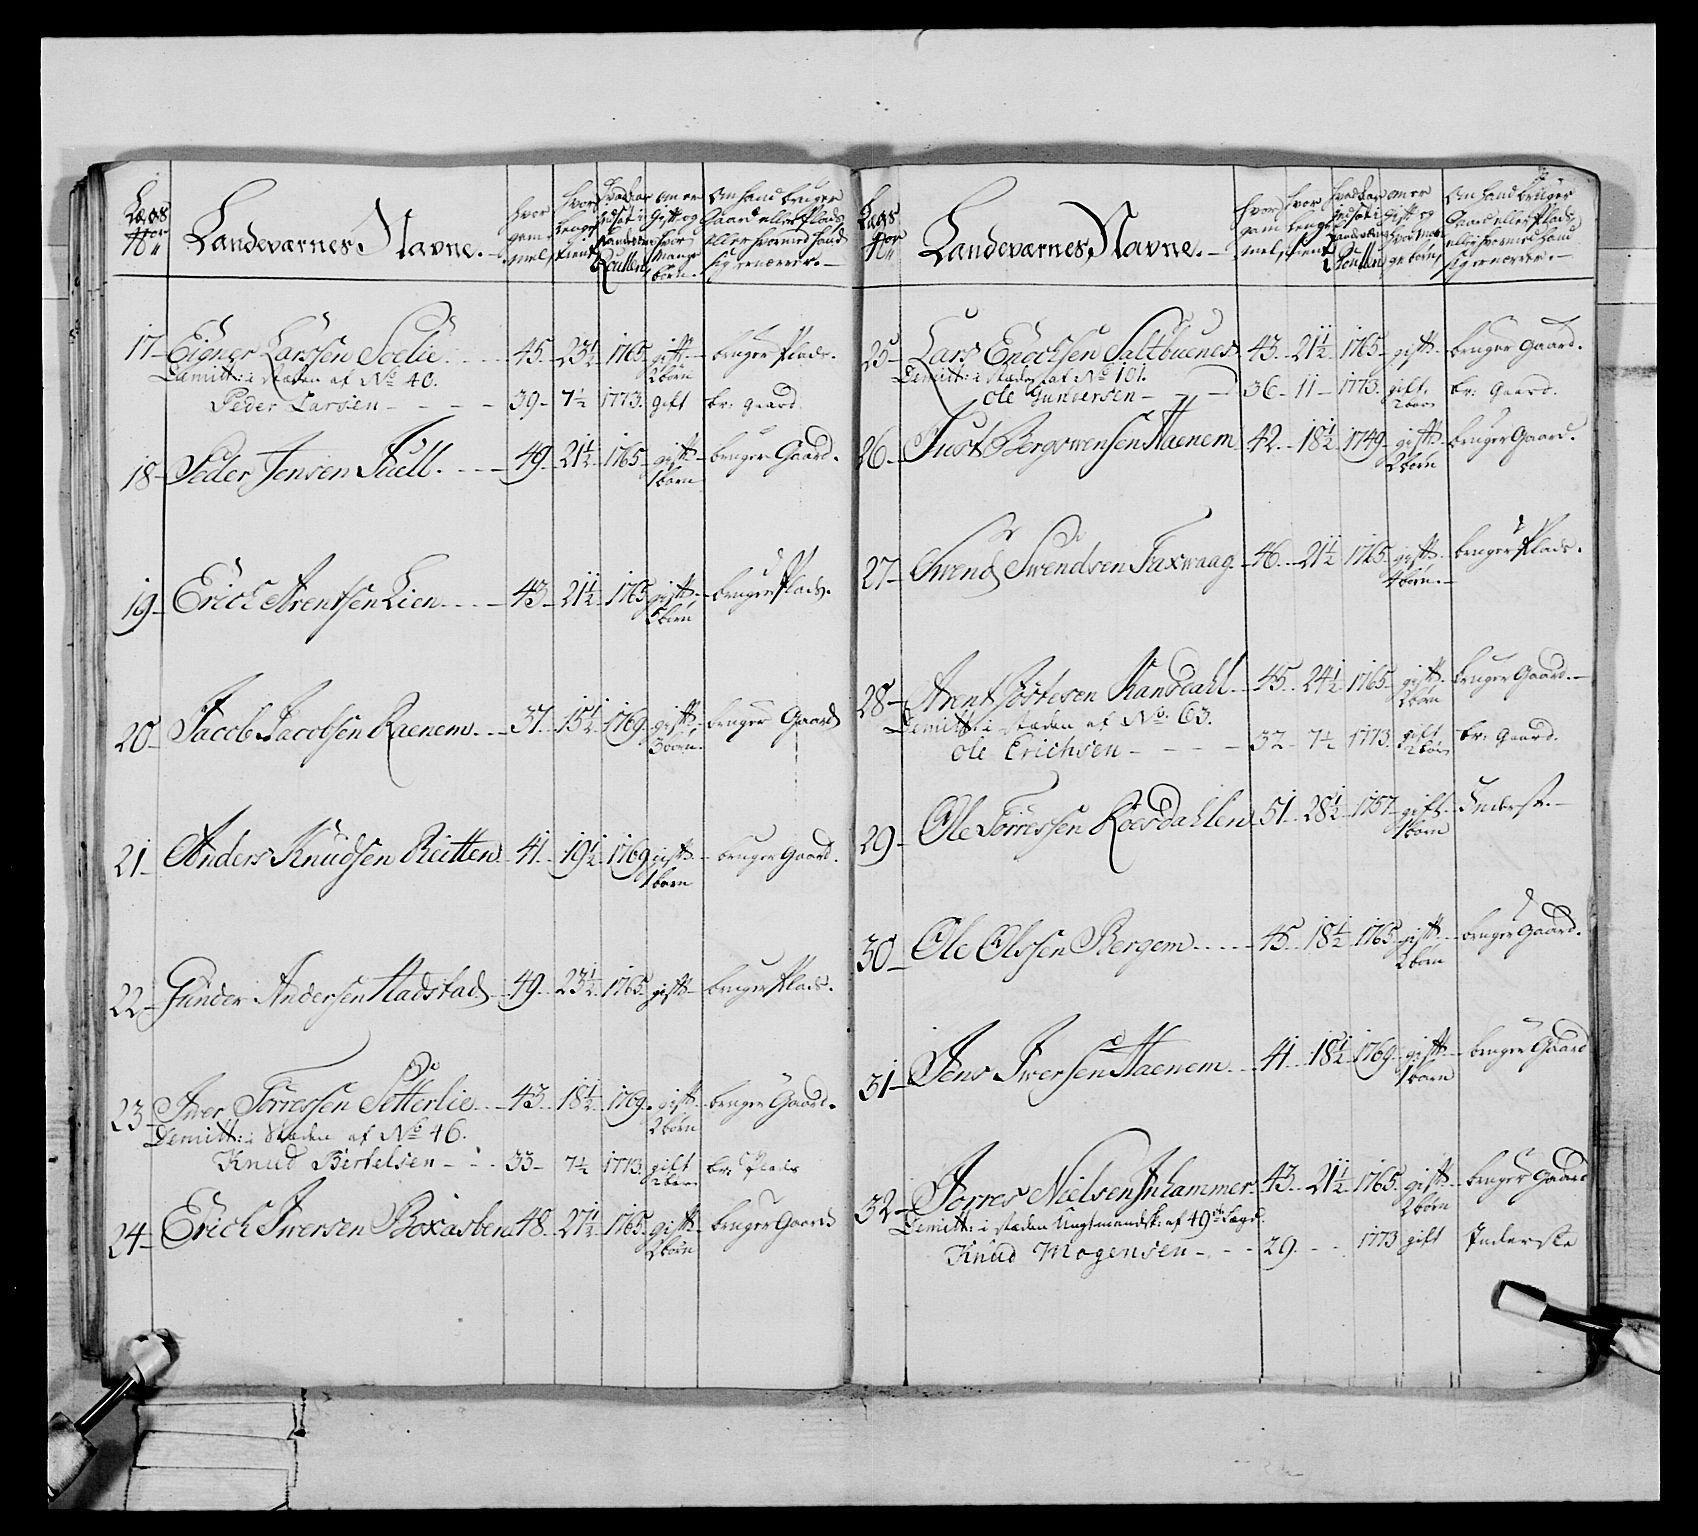 Lægs No
Landeværnes Navne.
hvor gammel,
hvor lenge tient
hvad aar indsat i Landeværns Roullen
om er Gift og hvor mange børn.
Om hand bruger Gaard eller Plads, eller hvormed hand sig ernærer.
17 Eigner Larssen Soelie 45. 23½ 1765 gift 2børn bruger Plads.
Demitt: i stæden af No 40.
Peder Larsen 39 7½ 1773. gift br: gaard
18 Peder Jensen Tuell 49 21½ 1765 gift 1barn bruger Gaard.
19 Erich Arentsen Lien 43 21½ 1765 gift 5børn bruger Plads.
20 Jacob Jacobsen Raenem 37 15½ 1769 gift 3børn bruger Gaard
21 Anders Knudsen Reitten 41 19½ 1769 gift 1barn bruger Gaard.
22 Gunder Andersen Hadstad 49 23½ 1765 gift bruger Plads.
23 Iver Torressen Setterlie 43 18½ 1769 gift 2børn bruger Gaard.
Demitt: i Stæden af No 46.
Knud Bertelsen 33 7½ 1773. gift 2børn br: Plads
24 Erich Iversen Boxasben 48 27½ 1765 gift 2børn bruger Gaard
Lægs No
Landeværnes Navne.
hvor gammel,
hvor lenge tient
hvad aar indsat i Landeværns Roullen
om er gift og hvor mange børn
Om hand bruger Gaard eller Plads, eller hvormed hand sig ernærer.
25 Lars Enochsen Saltbuenes 43. 21½ 1765 gift bruger Gaard.
Demitt: i stæden af No 101.
Ole Gundersen 36 11 1773. gift 2børn br: Gaard.
26 Just Bergsvensen Haenem 42 18½ 1749 gift 2børn bruger Gaard.
27 Svend Svendsen Faxwaag 46 21½ 1765 gift 4børn. bruger Plads.
28 Arent Jøstesen Kandahl 45 24½ 1765 gift 2børn bruger Gaard.
Demitt: i stæden af No. 63.
Ole Erichsen 32 7½ 1773. gift 2børn br: Gaard.
29 Ole Torressen Roesdahlen 51 28½ 1757 gift 1barn Inderst.
30 Ole Olssen Bergem 45 18½ 1765 gift 2børn bruger Gaard.
31 Jens Iversen Haenem 41 18½ 1769 gift 1barn bruger Gaard
32 Torres Nielsen Inhammer 43 21½ 1765. gift 2børn bruger Gaard
Demitt: i stæden Ungtmandsk: af 49de Lægd.
Knud Mogensen 29. 1773 gift Inderste